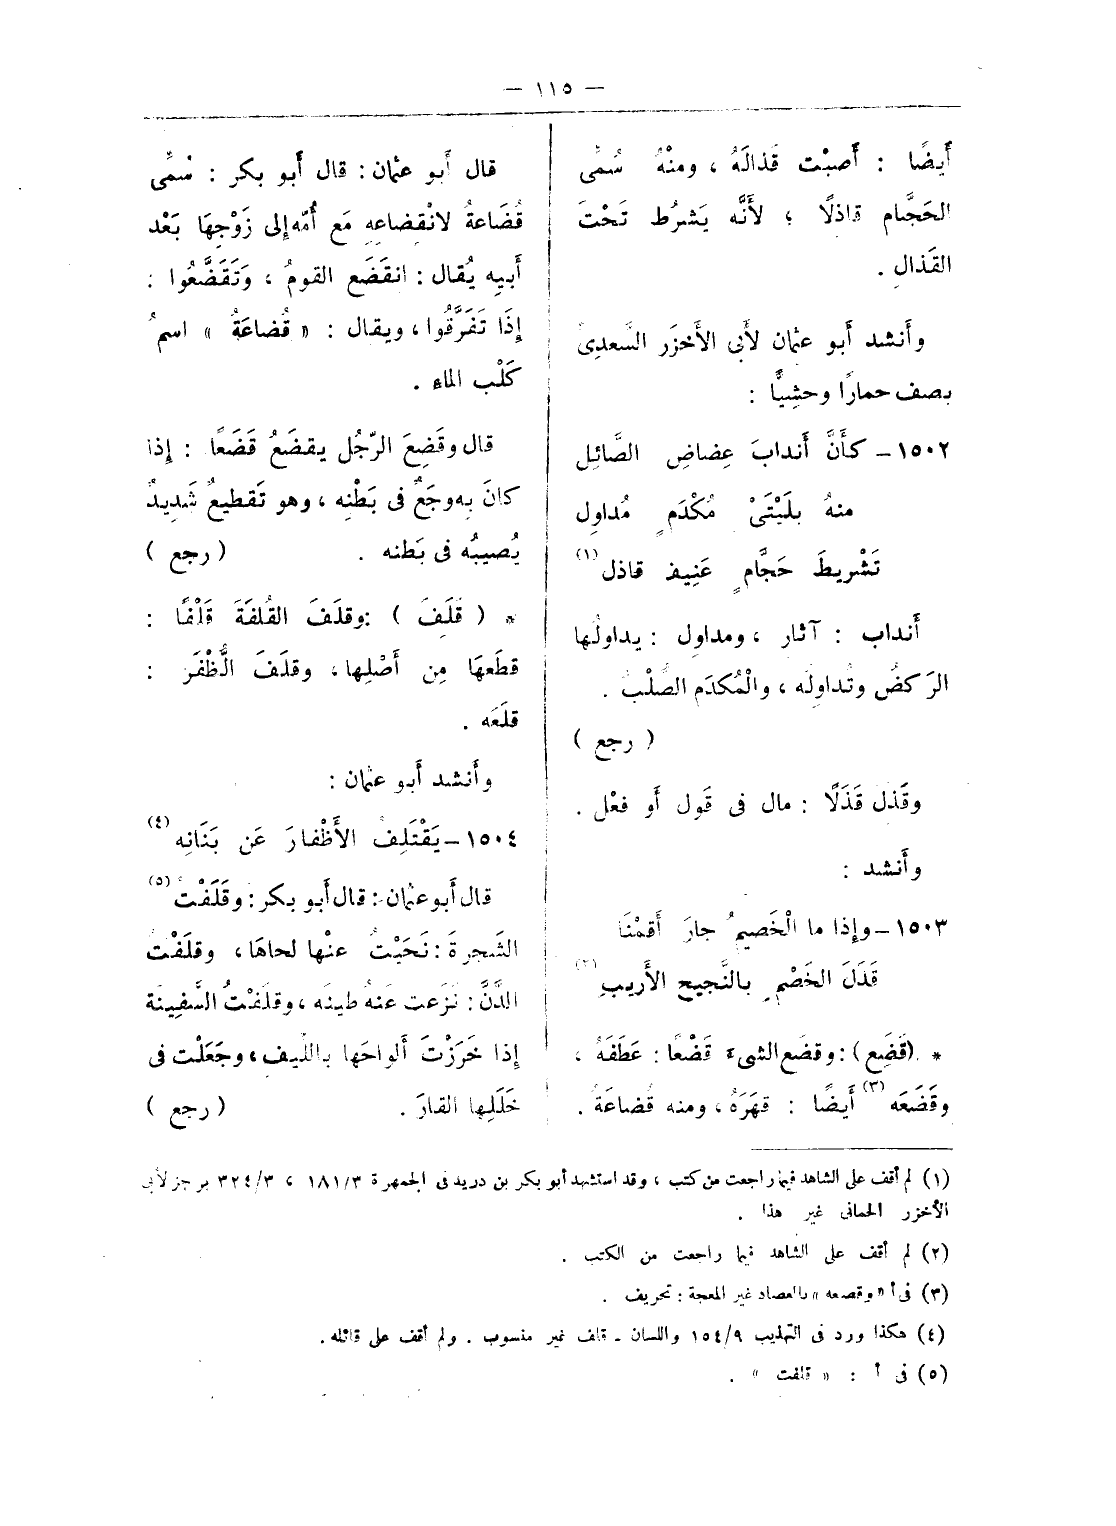 — ١١٥ —
أَيضًا : أَصبْت قَذالَهُ ، ومنْهُ سُمِّى
الحَجَّام قاذلًا ؛ لأَنَّه يَشرُط تَحْتَ
القَذال .
وأَنشد أَبو عثمان لأَبى الأَخزَر السَّعدِىِّ
يصف حمارًا وحشِيًّا :
١٥٠٢ – كأَنَّ أَندابَ عِضاضِ الصَّائِل
منهُ بلَيْتَىْ مُكْدَمٍ مُداوِل
تَشْريطَ حَجَّامٍ عَنِيف قاذل (١)
أَنداب : آثار ، ومداول : يداولُها
الرَكضُ وتُداولُه ، والْمُكدَم الصُّلْبُ .
( رجع )
وقَذَل قَذَلًا : مال فى قَول أَو فعْل .
وأَنشد :
١٥٠٣ – وإِذا ما الْخَصيمُ جارَ أَقمْنَا
قَذَلَ الخَصْمِ بالنَّجيح الأَريبِ (٢)
* (قَضَع) : وقضَع الشىءَ قَضْعًا : عَطَفَهُ ،
وقَضَعَه (٣) أَيضًا : قهَرَهُ ، ومنه قُضاعَةُ .
قال أَبو عثمان : قال أَبو بكر : سُمِّى
قُضَاعةُ لانْقِضاعِهِ مَع أُمّه إِلى زَوْجِهَا بَعْد
أَبيه يُقال : انقَضَع القومُ ، وَتَقَضَّعُوا :
إِذَا تَفَرَّقُوا ، ويقال : « قُضاعَةُ » اسمُ
كَلْب الماء .
قال وقَضِعَ الرّجُل يقضَعُ قَضَعًا : إِذا
كانَ بِه وجَعٌ فى بَطْنِه ، وهو تَقطيعٌ شَدِيدٌ
يُصيبُه فى بَطنه . ( رجع )
* ( قَلَفَ ) : وقلَفَ القُلفَةَ قَلْفًا :
قطَعهَا مِن أَصْلِها ، وقلَفَ الظُّفَرَ :
قلَعَه .
وأَنشد أَبو عثمان :
١٥٠٤ – يَقْتَلِفُ الأَظْفارَ عَن بَنَانِه (٤)
قال أَبو عثمان : قال أَبو بكر : وقَلَفْتُ (٥)
الشَجرةَ : نَحَيْتُ عنْها لحاهَا ، وقلَفْتُ
الدَّنَّ : نَزَعت عَنهُ طينَه ، وقلَفْتُ السَّفِينَة
إِذا خَرَزْتَ أَلواحَها باللِّيف ، وجَعَلْت فى
خَلَلِها القارَ . ( رجع )
(١) لم أقف على الشاهد فيما راجعت من كتب ، وقد استشهد أبو بكر بن دريد فى الجمهرة ١٨١/٣ ، ٣٢٤/٣ برجز لأبى
الأخزر الحمانى غير هذا .
(٢) لم أقف على الشاهد فيما راجعت من الكتب .
(٣) فى أ « وقصعه » بالصاد غير المعجة : تحريف .
(٤) هكذا ورد فى التهذيب ١٥٤/٩ واللسان – قلف غير منسوب . ولم أقف على قائله .
(٥) فى أ : « قلفت » .